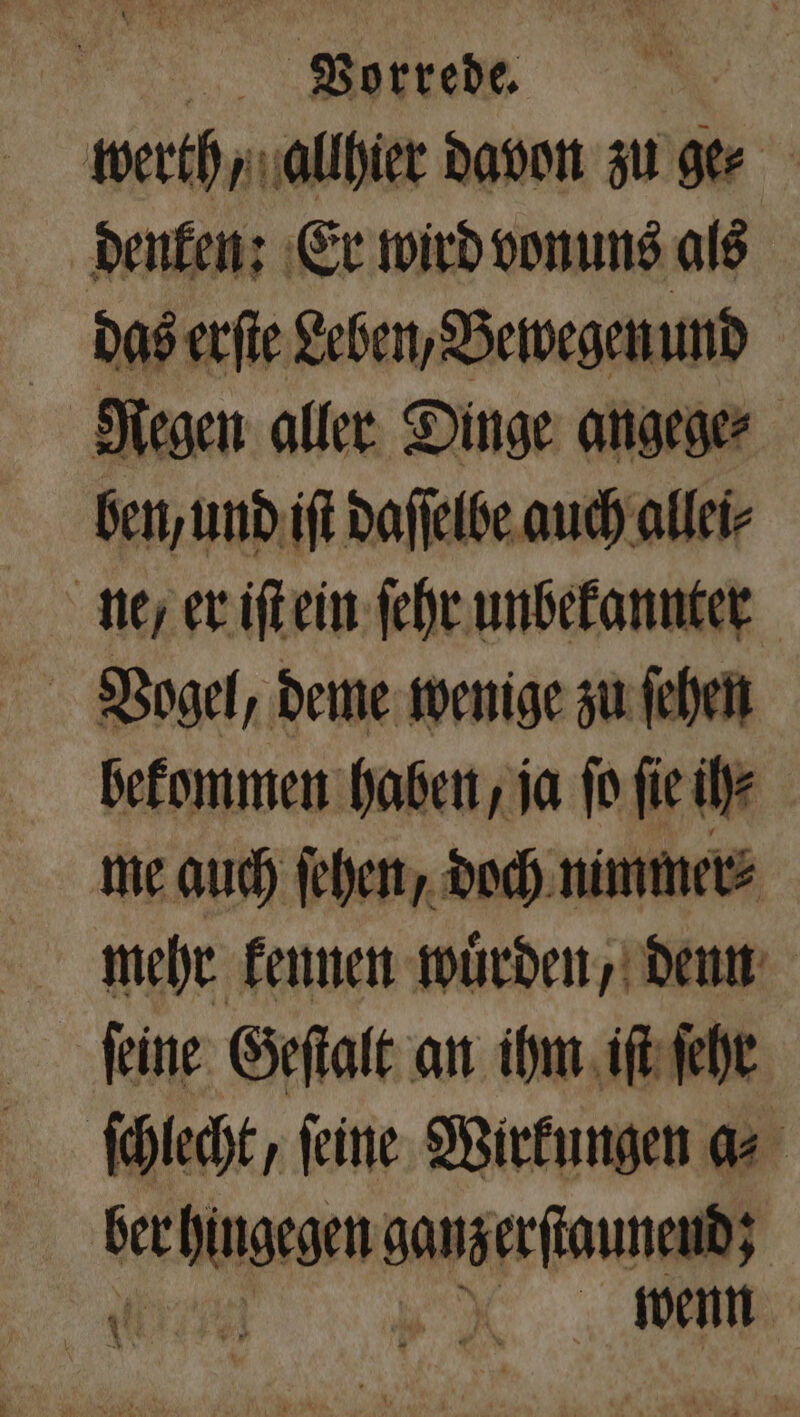 Vorrede.
werth, allhier davon zu ge⸗
denken: Er wird von uns als
das erſte Leben, Bewegen und
Regen aller Dinge angege⸗
ben, und iſt daſſelbe auch allei⸗
ne, er iſt ein ſehr unbekannter
Vogel, deme wenige zu ſehen
bekommen haben, ja ſo ſie ih⸗
me auch ſehen, doch nimmer⸗
mehr kennen wuͤrden, denn
ſeine Geſtalt an ihm iſt ſehr
ſchlecht, ſeine Wirkungen a⸗
ber hingegen ganz erſtaunend;
wenn